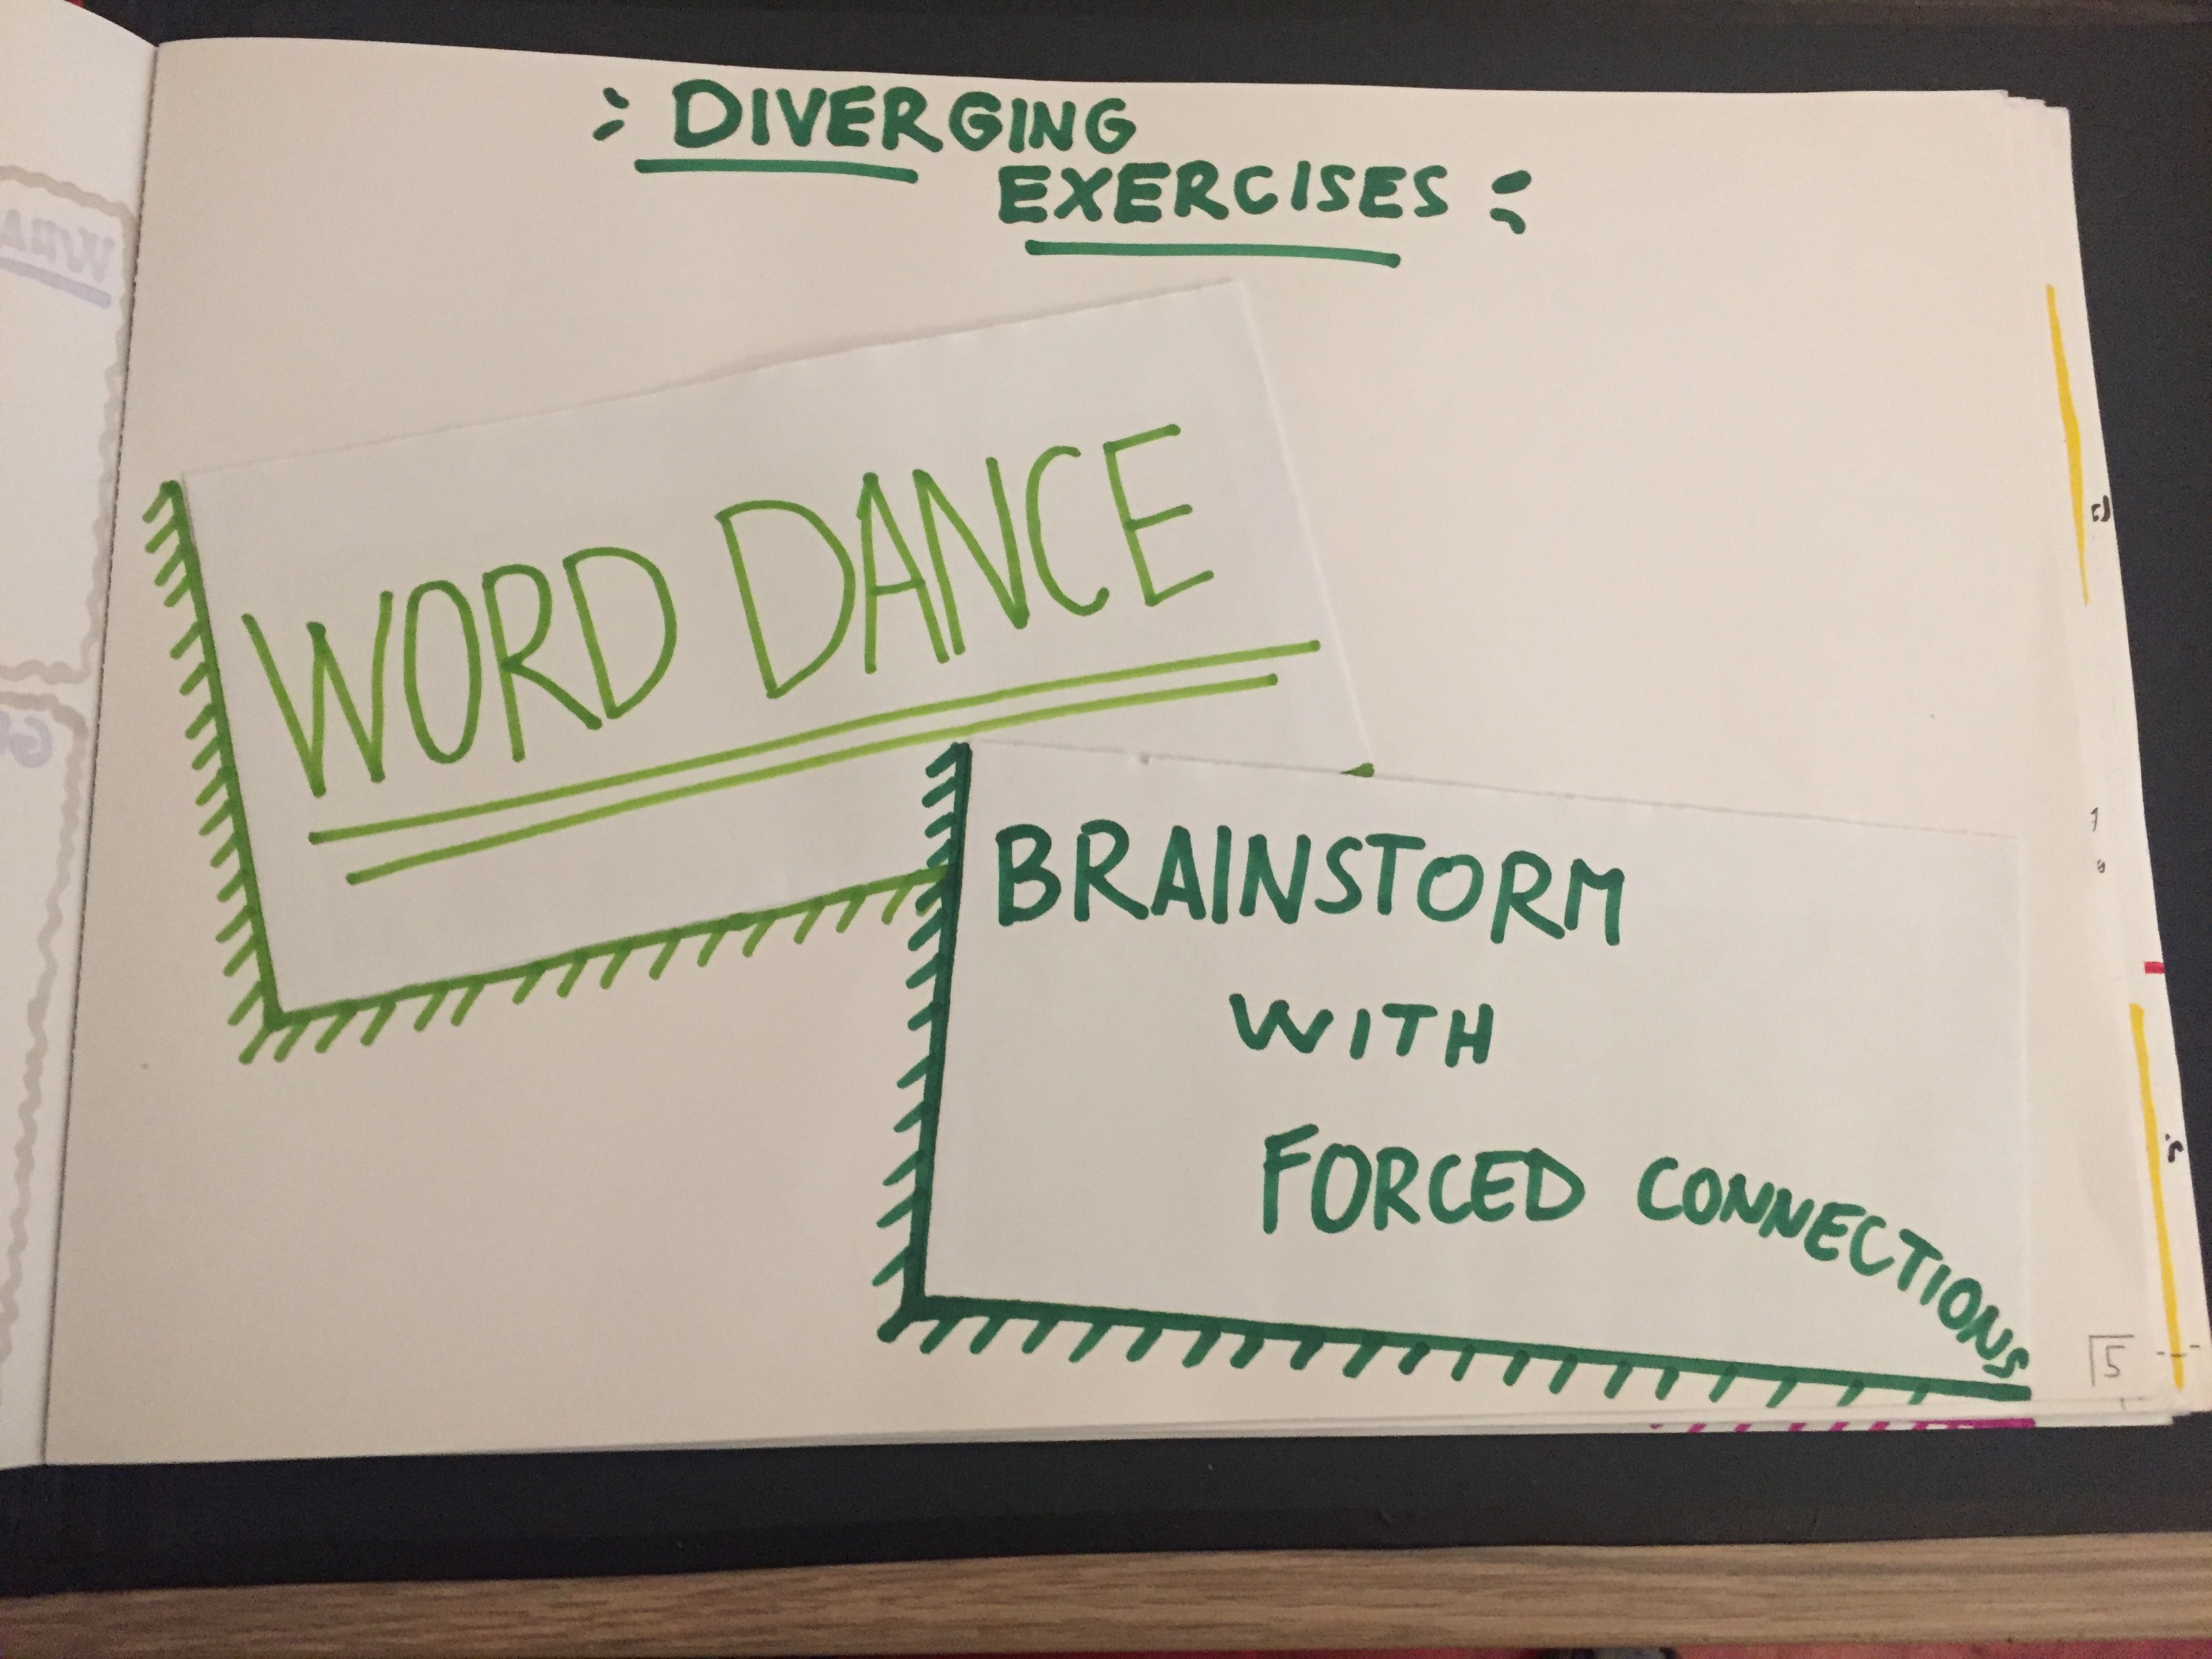 DIVERGING
EXERCISES
WORD DANCE
BRAINSTORM
WITH
FORCED CONNECTIONS
5